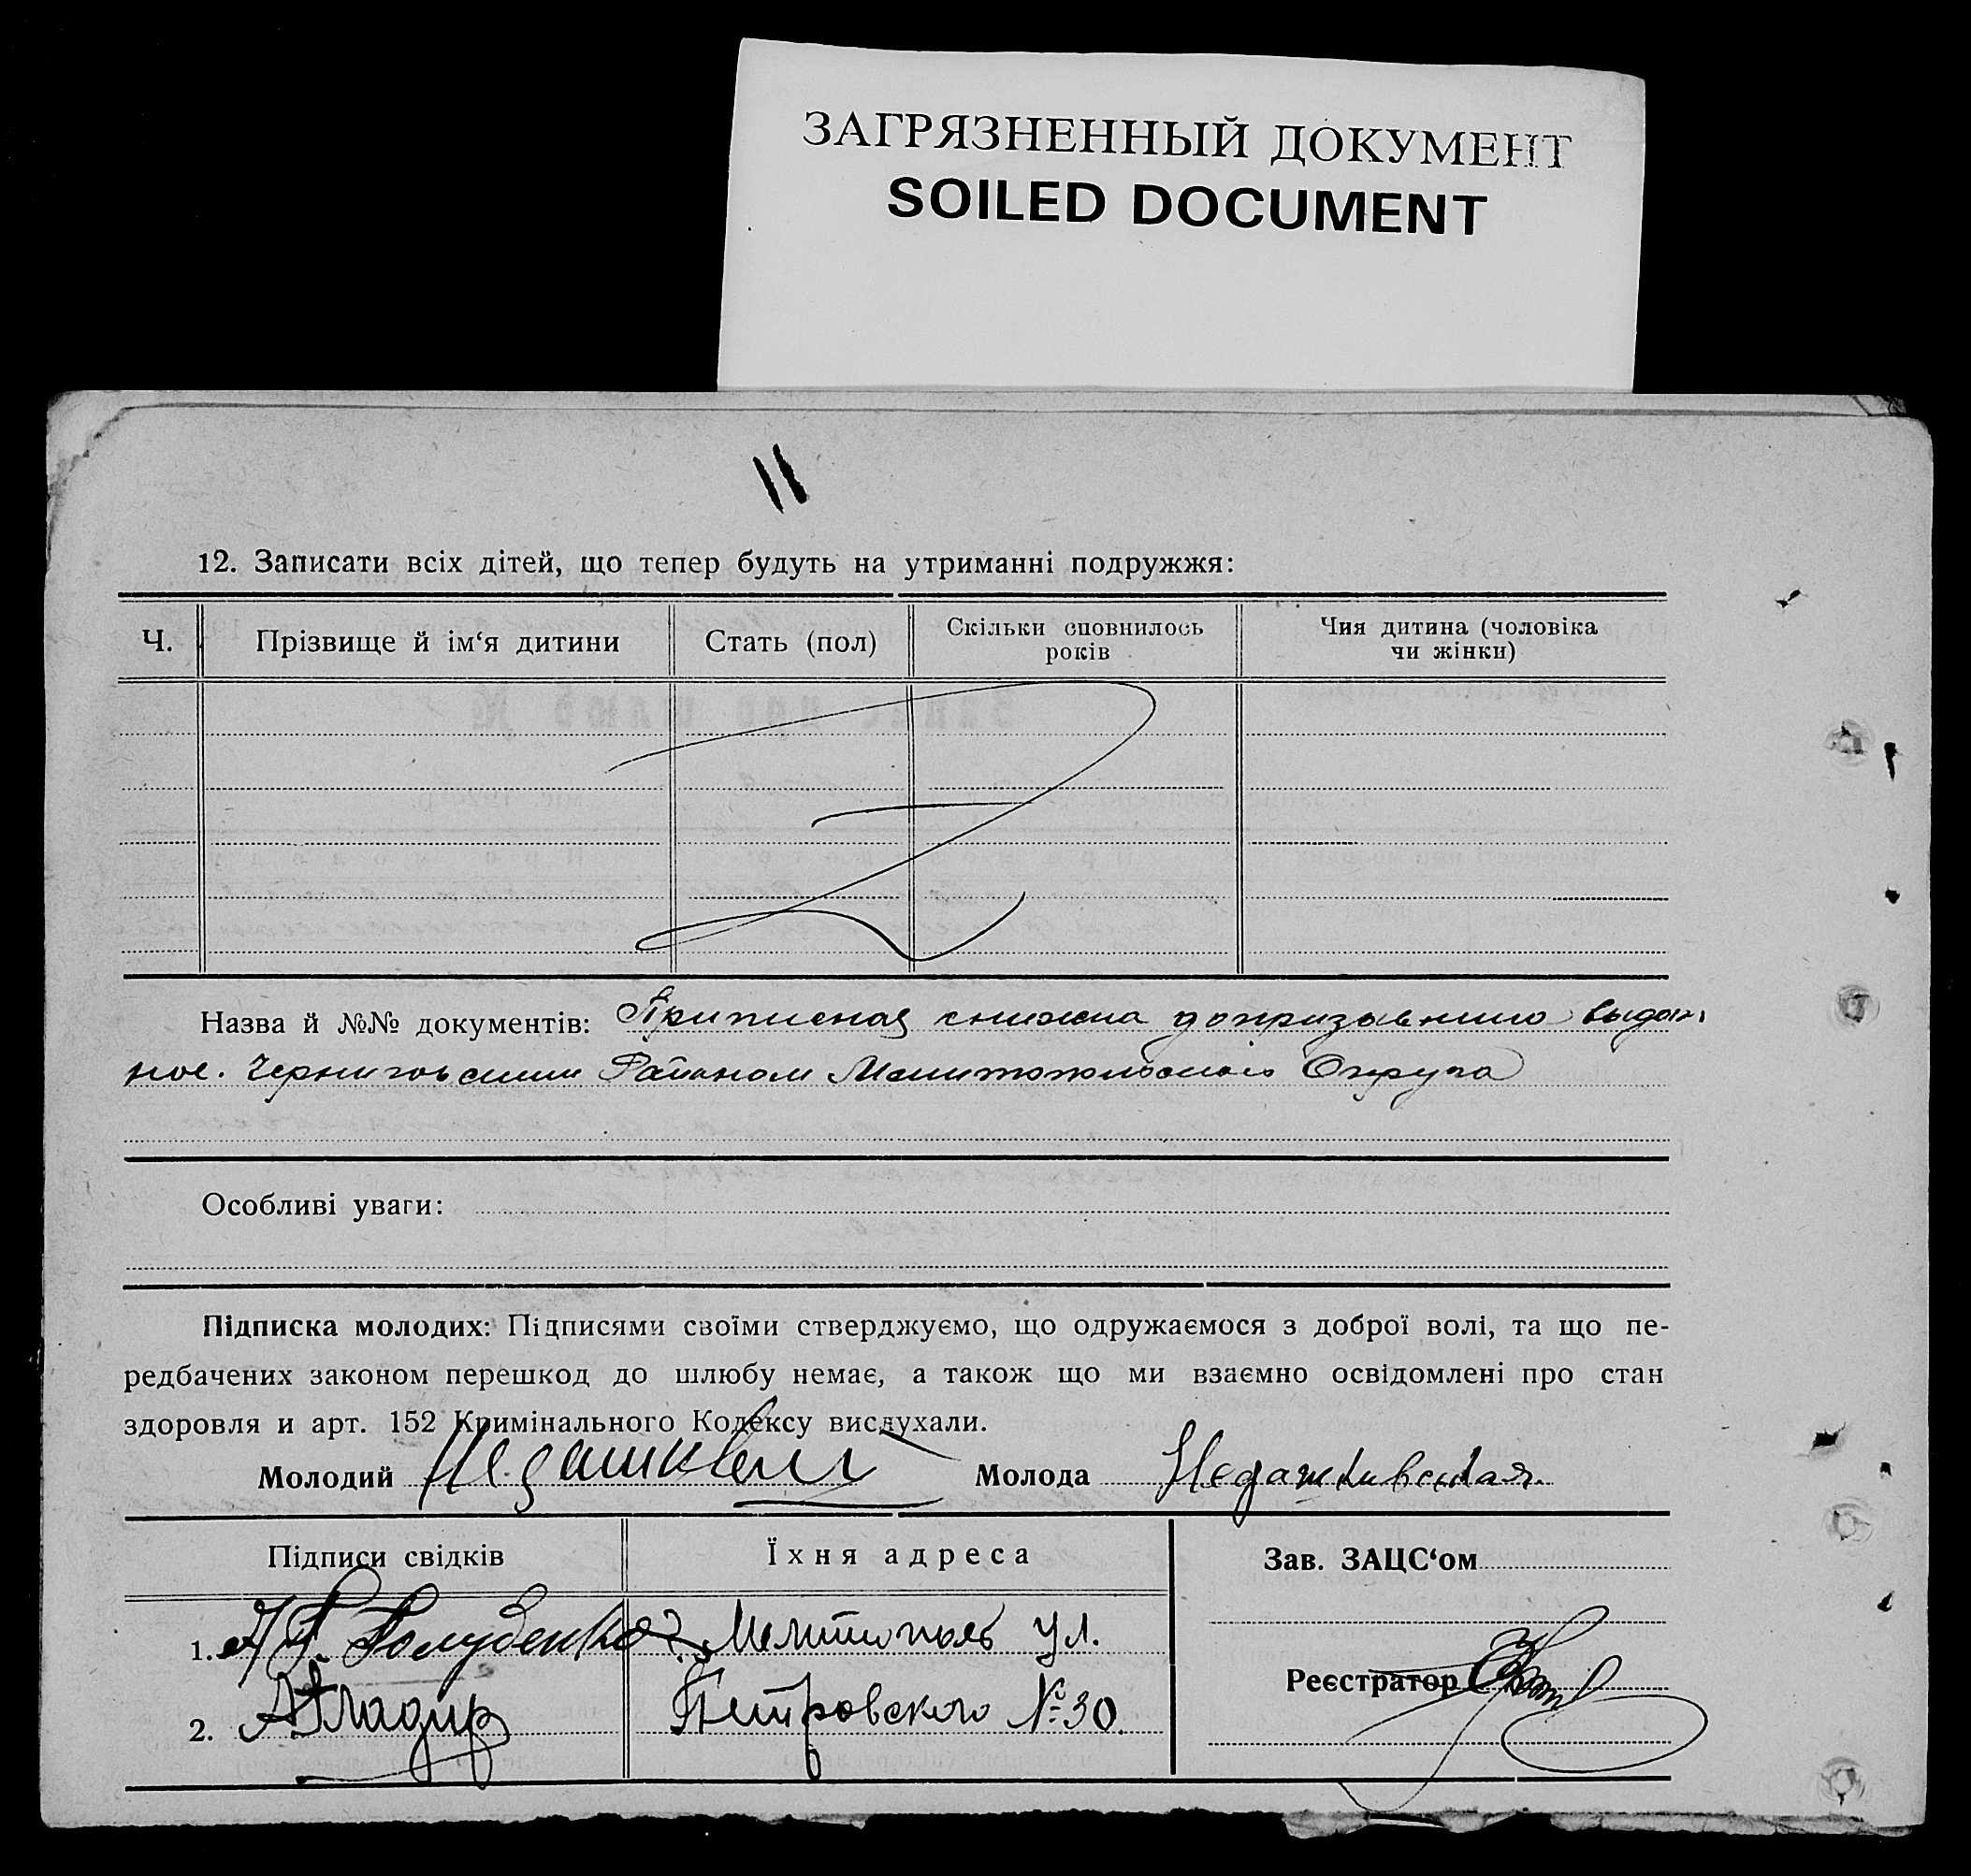 ЗАГРЯЗНЕННЫЙ ДОКУМЕНТ
SOILED DOCUMENT
11
12. Записати всіх дітей, що тепер будуть на утриманні подружжя:
Ч. Прізвище й ім‘я дитини Стать (пол) Скільки сповнилось років Чия дитина (чоловіка чи жінки)
Назва й №№ документів: Приписная книжка допризывника выдан
ное. Черниговским Райкном Мелитопольского Округа
Особливі уваги:
Підписка молодих: Підписями своїми стверджуємо, що одружаємося з доброї волі, та що пе-
редбачених законом перешкод до шлюбу немає, а також що ми взаємно освідомлені про стан
здоровля и арт. 152 Кримінального Кодексу вислухали.
Молодий Молода Недашкивская.
Підписи свідків Їхня адреса Зав. ЗАЦС‘ом
1. г. Мелитополь ул.
Реєстратор
2. Петровского № 30.